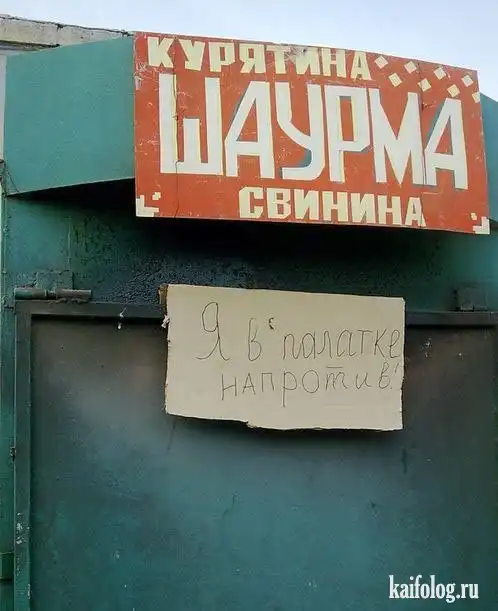 КУРЯТИНА
ШАУРМА
СВИНИНА
Я в палатке
напротив!
kaifolog.ru